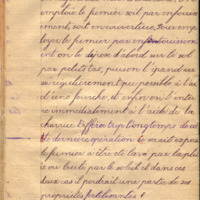 emploie le premier soit par enfouisse
ment, soit en couverture. Pour em
ployer le fumier par enfouissement
on le dépose d'abord sur le sol
par petits tas, puis on l'épand aus
si régulièrement que possible à l'ai
de d'une fourche, et enfin on l'enterre
immédiatement à l'aide de la
charrue. Différer trop longtemps de
cette dernière opération
le fumier à être lavé par la plu
ie ou brûlé par le soleil et dans ces
deux cas il perdrait une partie de ses
propriétés fertilisantes.